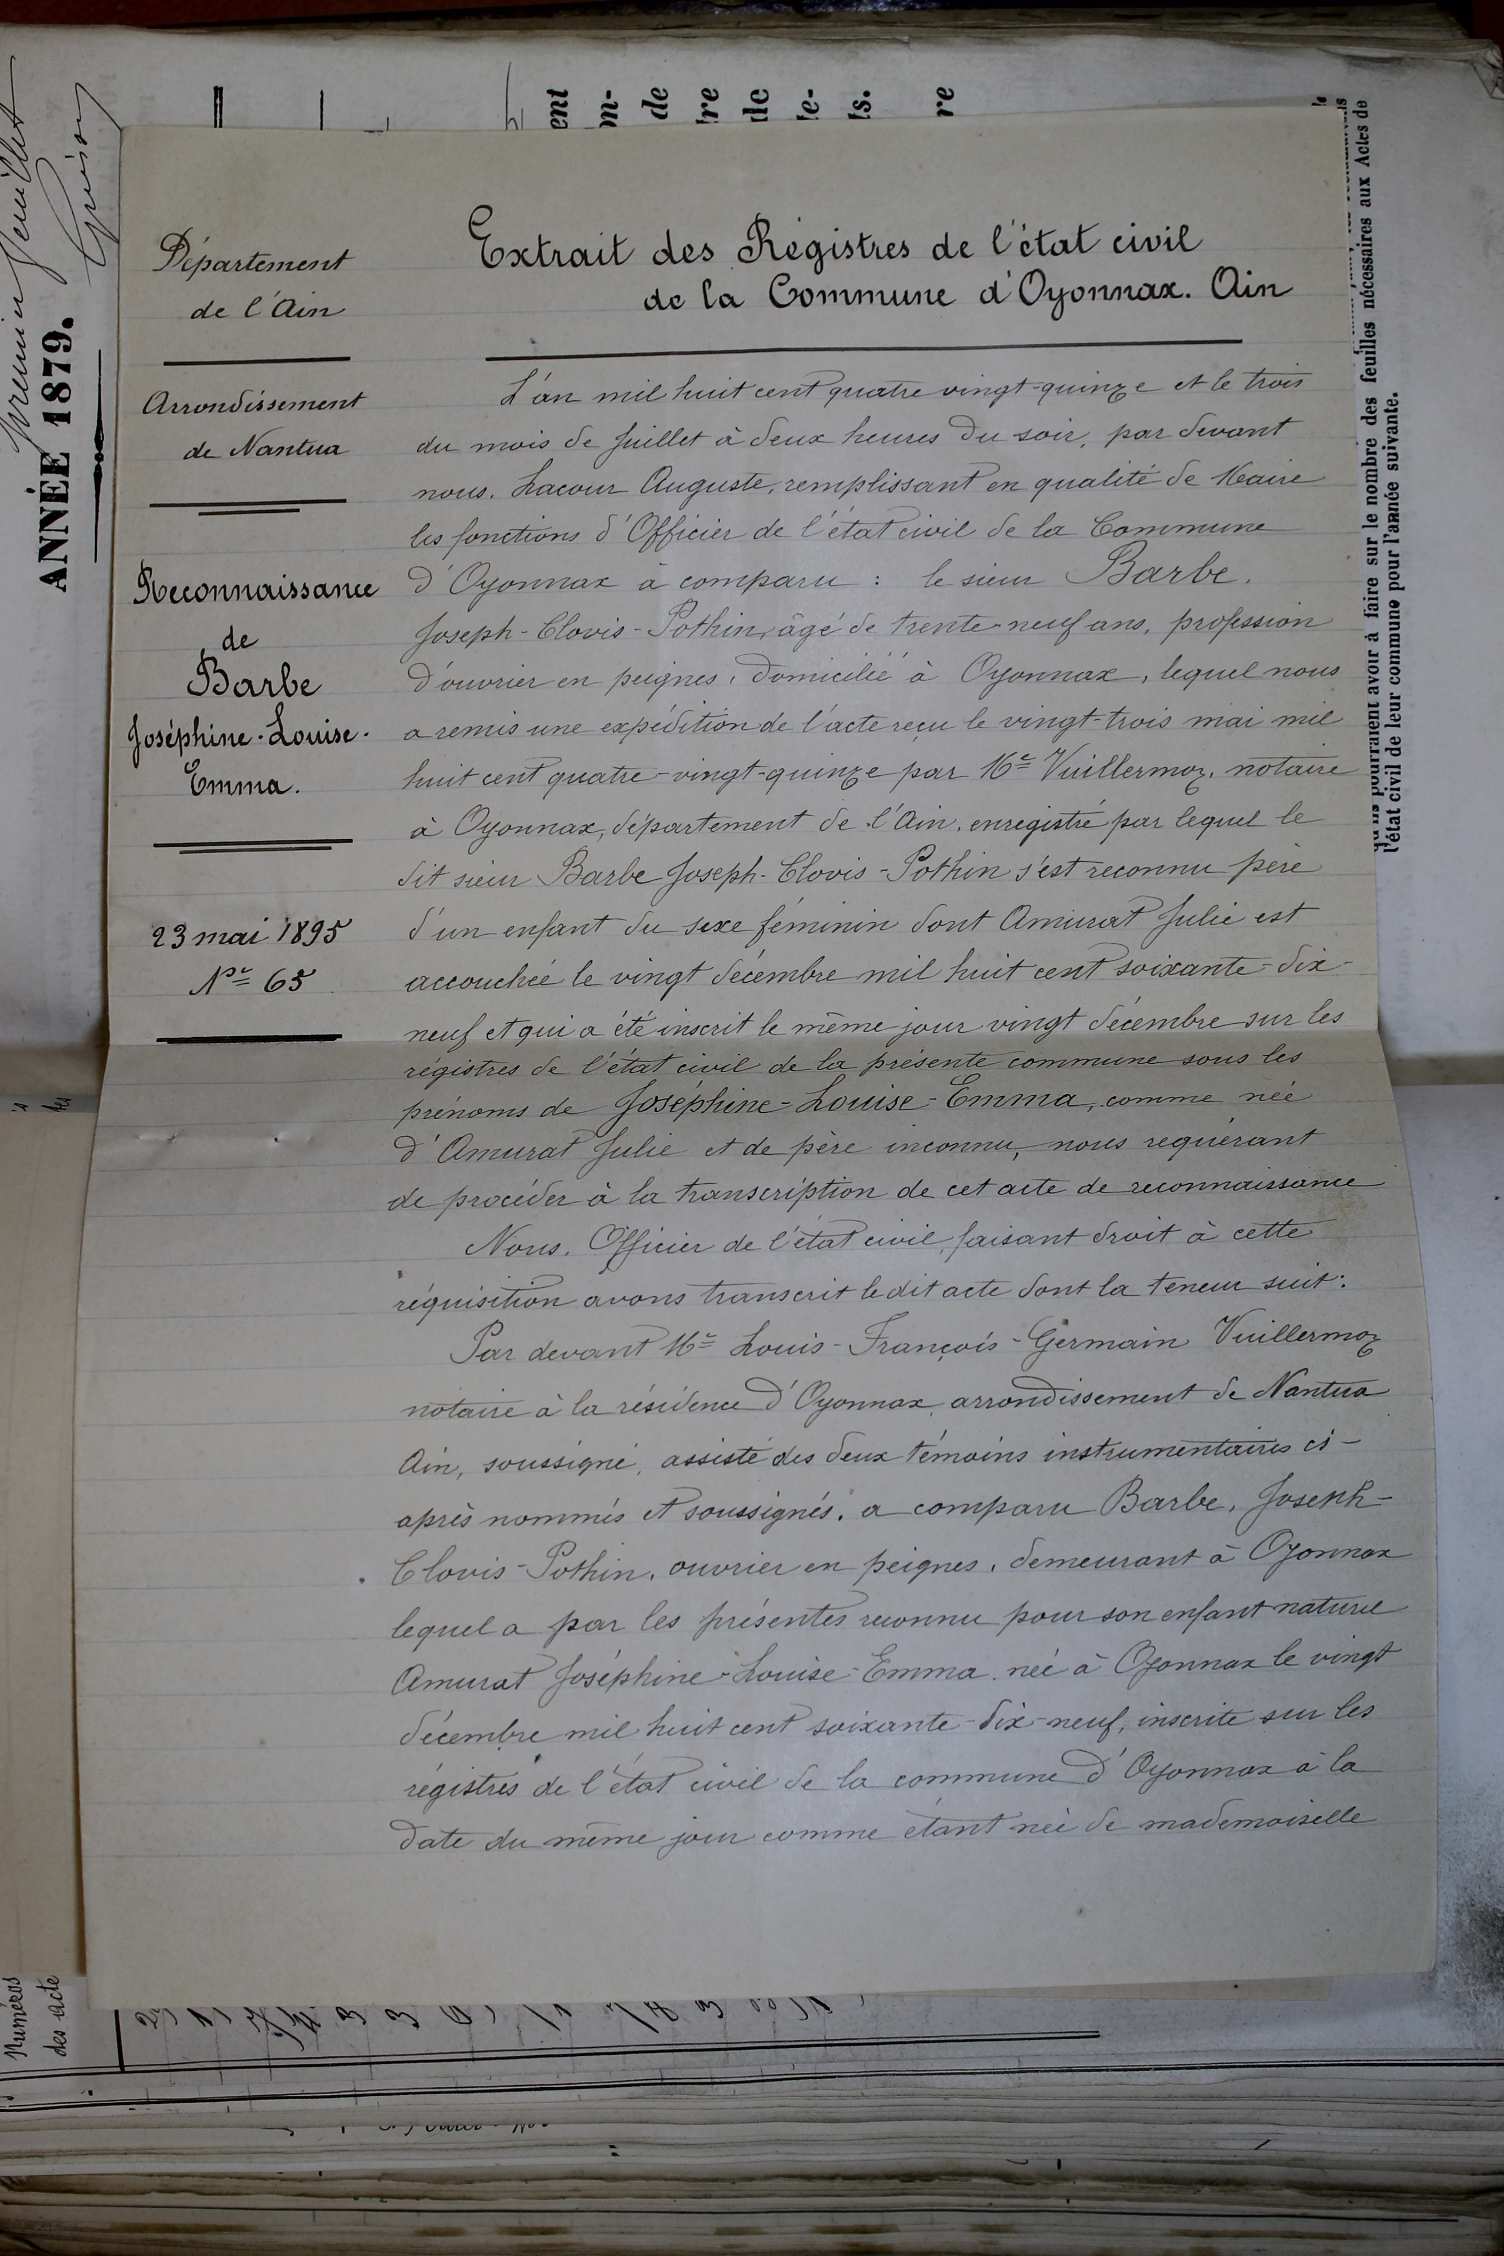 Département
de l'Ain
Arrondissement
de Nantua
Reconnaissance
de
Barbe
Joséphine-Louise-
Emma.
23 mai 1895
Nº 65
Extrait des Régistres de l'état civil
de la Commune d'Oyonnax. Ain
L'an mil huit cent quatre vingt-quinze et le trois
du mois de Juillet à deux heures du soir, par devant
nous. Lacour Auguste, remplissant en qualité de Maire
les fonctions d'Officier de l'état civil de la Commune
d'Oyonnax à comparu : le sieur Barbe.
Joseph-Clovis-Pothin, âgé de trente-neuf ans, profession
d'ouvrier en peignes, domicilié à Oyonnax, lequel nous
a remis une expédition de l'acte reçu le vingt-trois mai mil
huit cent quatre-vingt-quinze par Me Vuillermoz, notaire
à Oyonnax, département de l'Ain, enregistré par lequel le
dit sieur Barbe Joseph-Clovis-Pothin s'est reconnu père
d'un enfant du sexe féminin dont Amurat Julie est
accouchée le vingt décembre mil huit cent soixante-dix-
neuf et qui a été inscrit le même jour vingt décembre sur les
régistres de l'état civil de la présente commune sous les
prénoms de Joséphine-Louise-Emma, comme née
d'Amurat Julie et de père inconnu, nous requérant
de procéder à la transcription de cet acte de reconnaissance
Nous. Officier de l'état civil, faisant droit à cette
réquisition avons transcrit ledit acte dont la teneur suit:
Par devant Me Louis-François-Germain Vuillermoz
notaire à la résidence d'Oyonnax, arrondissement de Nantua
Ain, soussigné, assisté des deux témoins instrumentaires ci-
après nommés et soussignés. a comparu Barbe, Joseph-
Clovis-Pothin, ouvrier en peignes, demeurant à Oyonnax
lequel a par les présentes reconnu pour son enfant naturel
Amurat Joséphine-Louise-Emma née à Oyonnax le vingt
décembre mil huit cent soixante-dix-neuf, inscrite sur les
régistres de l'état civil de la commune d'Oyonnax à la
date du même jour comme étant née de mademoiselle
ANNÉE 1879.
premier feuillet
faire sur le nombre des feuilles nécessaires aux Actes de
l'état civil de leur commune pour l'année suivante.
Numéros
des acte